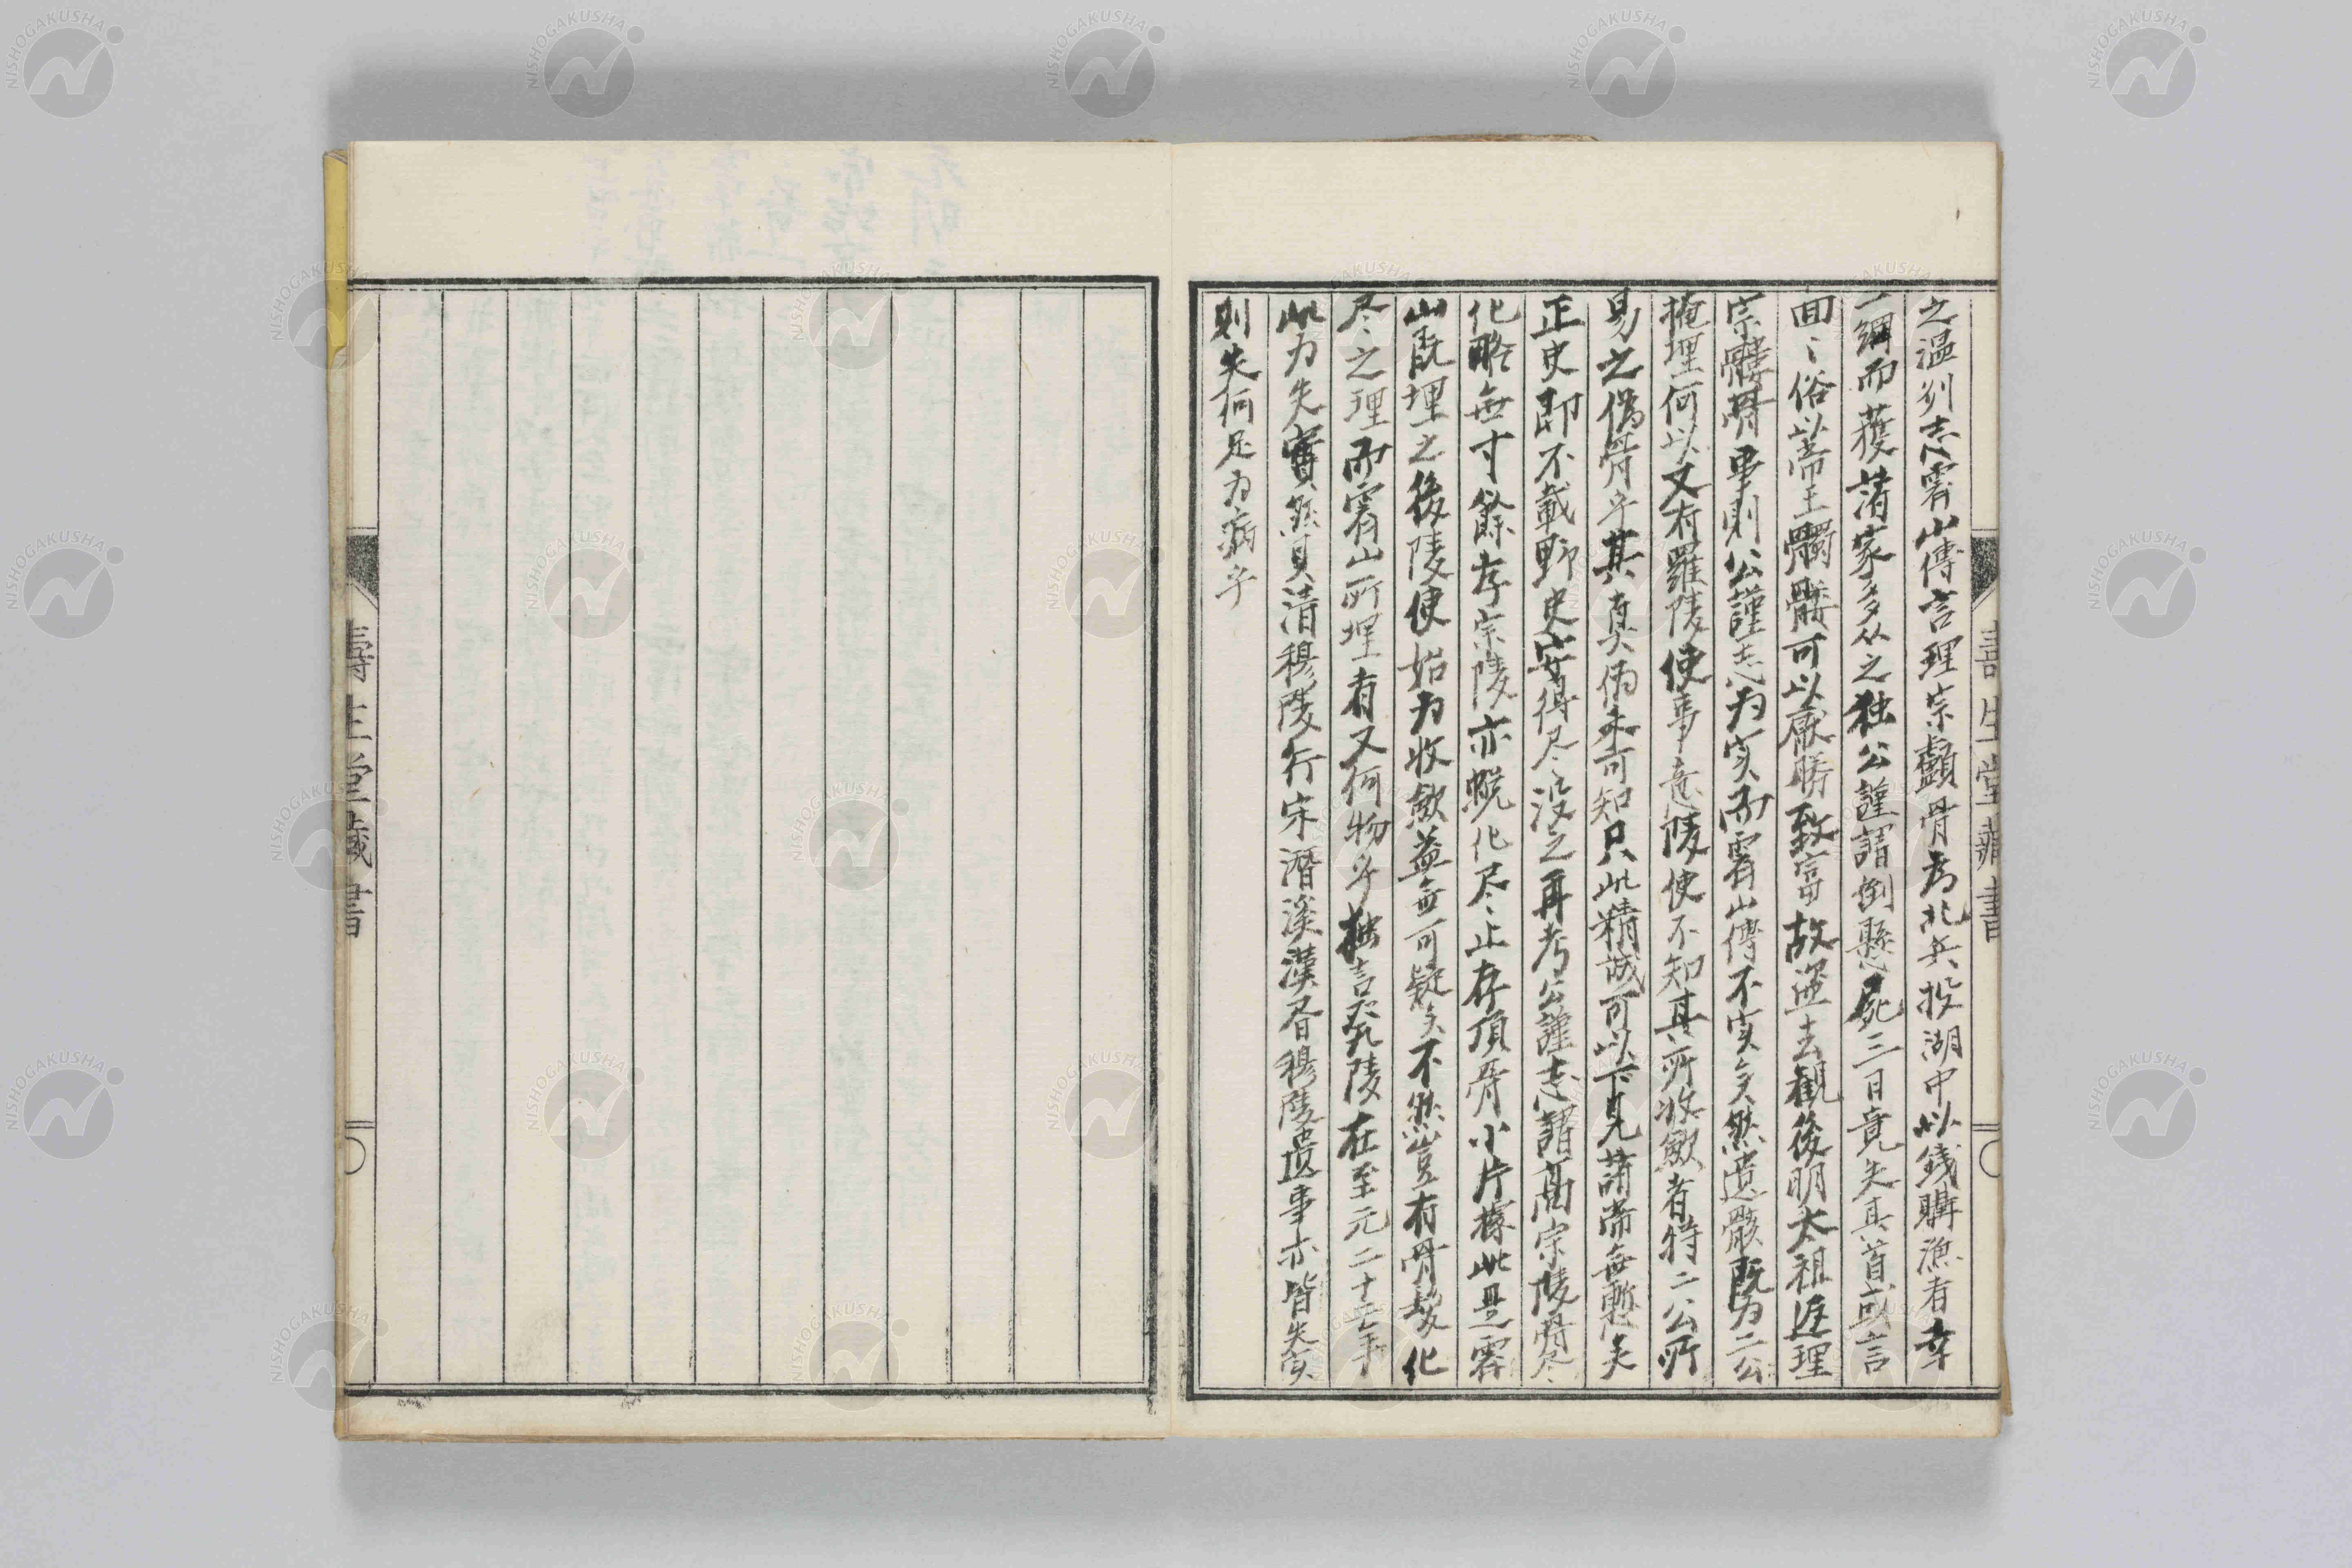 之温列志霽山傳言理宗顱骨為北兵投湖中以錢購漁者幸
一綱而獲諸家多从之独公謹謂倒懸屍三日竟失其首或言
回〻俗以帝王髑髏可以厭勝致富故盜去観後明太祖返理
宗髏骨事則公謹志为实而霽山傳不实矣然遺骸既为二公
掩埋何以又有羅陵使事意陵使不知其所收斂者特二公所
易之偽骨乎其真偽未可知只此精誠可以下見諸帝無慙矣
正史即不載野史安得尽没之再考公謹志謂高宗陵骨尽
化略無寸餘孝宗陵亦蛻化尽止存頂骨小片據此是霽
山既埋之後陵使始为收斂益無可疑矣不然豈有骨髮化
尽之理而霽山所埋者又何物乎独言癸陵在至元二十五年
此为失實然貝清穆陵行宋潛溪漢春穆陵遺事亦皆失实
則失何足为病乎
壽生堂藏書
壽生堂藏書